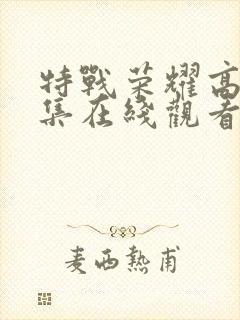 特戰荣耀高
集在綫觀看
麦西熱甫